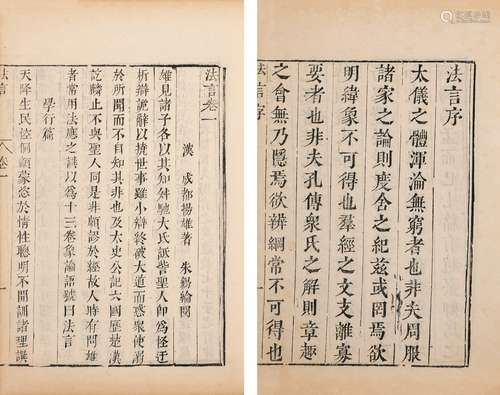 法言序
太儀之體渾淪無窮者也非夫周服
諸家之論則度舍之紀茲或罔焉欲
明緯象不可得也羣經之文支離寡
要者也非夫孔傳衆氏之解則章趣
之會無乃隱焉欲辨綱常不可得也
法言序
法言卷一
漢 成都揚雄著 朱錫綸閱
雄見諸子各以其知舛馳大氐詆訾聖人卽爲怪迂
析辯詭辭以撓世事雖小辯終破大道而惑衆使溺
於所聞而不自知其非也及太史公記六國歷楚漢
訖麟止不與聖人同是非頗謬於經故人時有問雄
者常用法應之譔以爲十三卷象論語號曰法言
學行篇
天降生民倥侗顓蒙恣於情性聰明不開訓諸理譔
法言 卷一